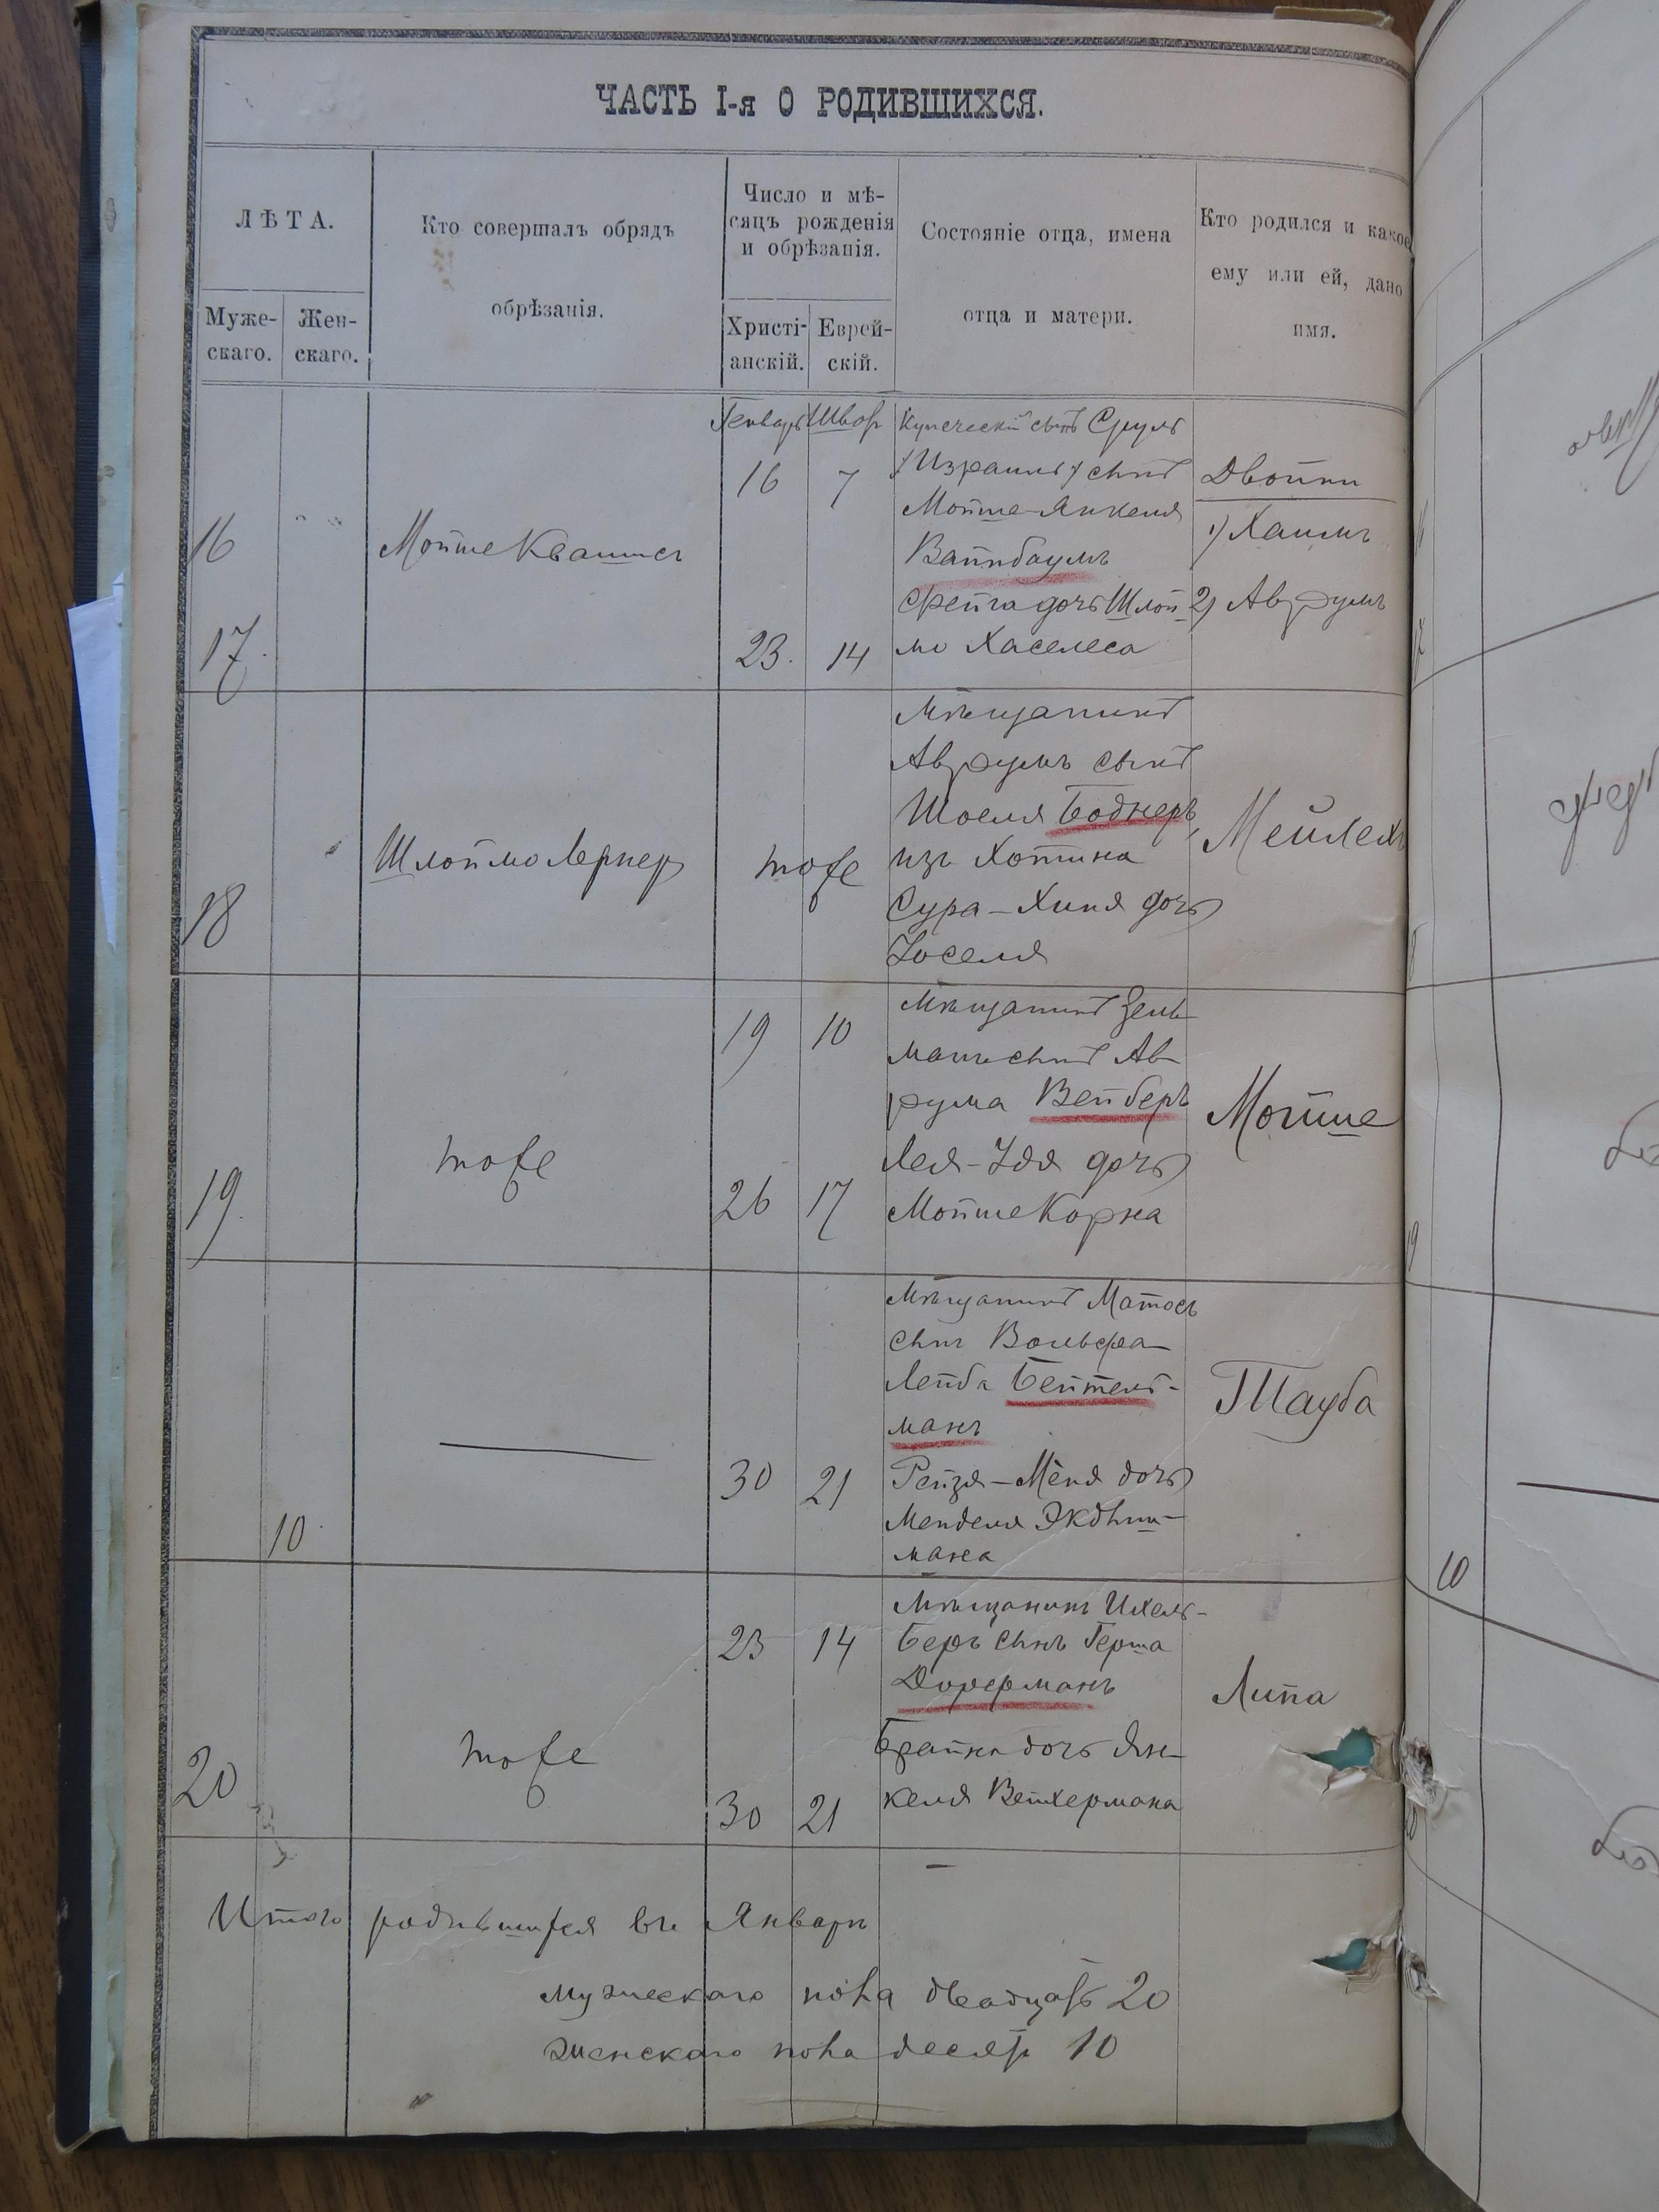 ЧАСТЬ I-я О РОДИВШИХСЯ.
ЛѢТА.
Муже-
скаго.
Жен-
скаго.
Кто совершалъ обрядъ
обрѣзанія.
Число и мѣ-
сяцъ рожденія
и обрѣзанія.
Христі-
анскій.
Еврей-
скій.
Состояніе отца, имена
отца и матери.
Кто родился и какое
ему или ей, дано
имя.
16
17.
Мойше Квашис
Генварь
16
23.
Швор
7
14
Купеческій сынъ Сруль
/Израиль/ сынъ
Мойше-Янкеля
Вайнбаумъ
Фейга дочь Шлой
мо Хаселеса
Двойни
1) Хаимъ
2) Аврумъ
18
Шлоймо Лернер
тоже
Мѣщанинъ
Аврумъ сынъ
Шоеля Боднеръ
изъ Хотина
Сура-Хиня дочь
Іоселя
Мейлехъ
19.
тоже
19
26
10
17
Мѣщанинъ Зель-
манъ сынъ Ав-
рума Вейберъ
Лея-Идя дочь
Мойше Корна
Мойше
10.
30
21
Мѣщанинъ Матосъ
сынъ Вольфа-
Лейба Бейтель-
манъ
Рейзя-Меня дочь
Менделя
мана
Тауба
20
тоже
23
30
14
21
Мѣщанинъ Ихель-
Беръ сынъ Герша
Дорфманъ
Брайна дочь Ян-
келя Вейхермана
Липа
Итого родившихся въ Январѣ
мужескаго пола двадцать 20
женскаго пола десять 10
10